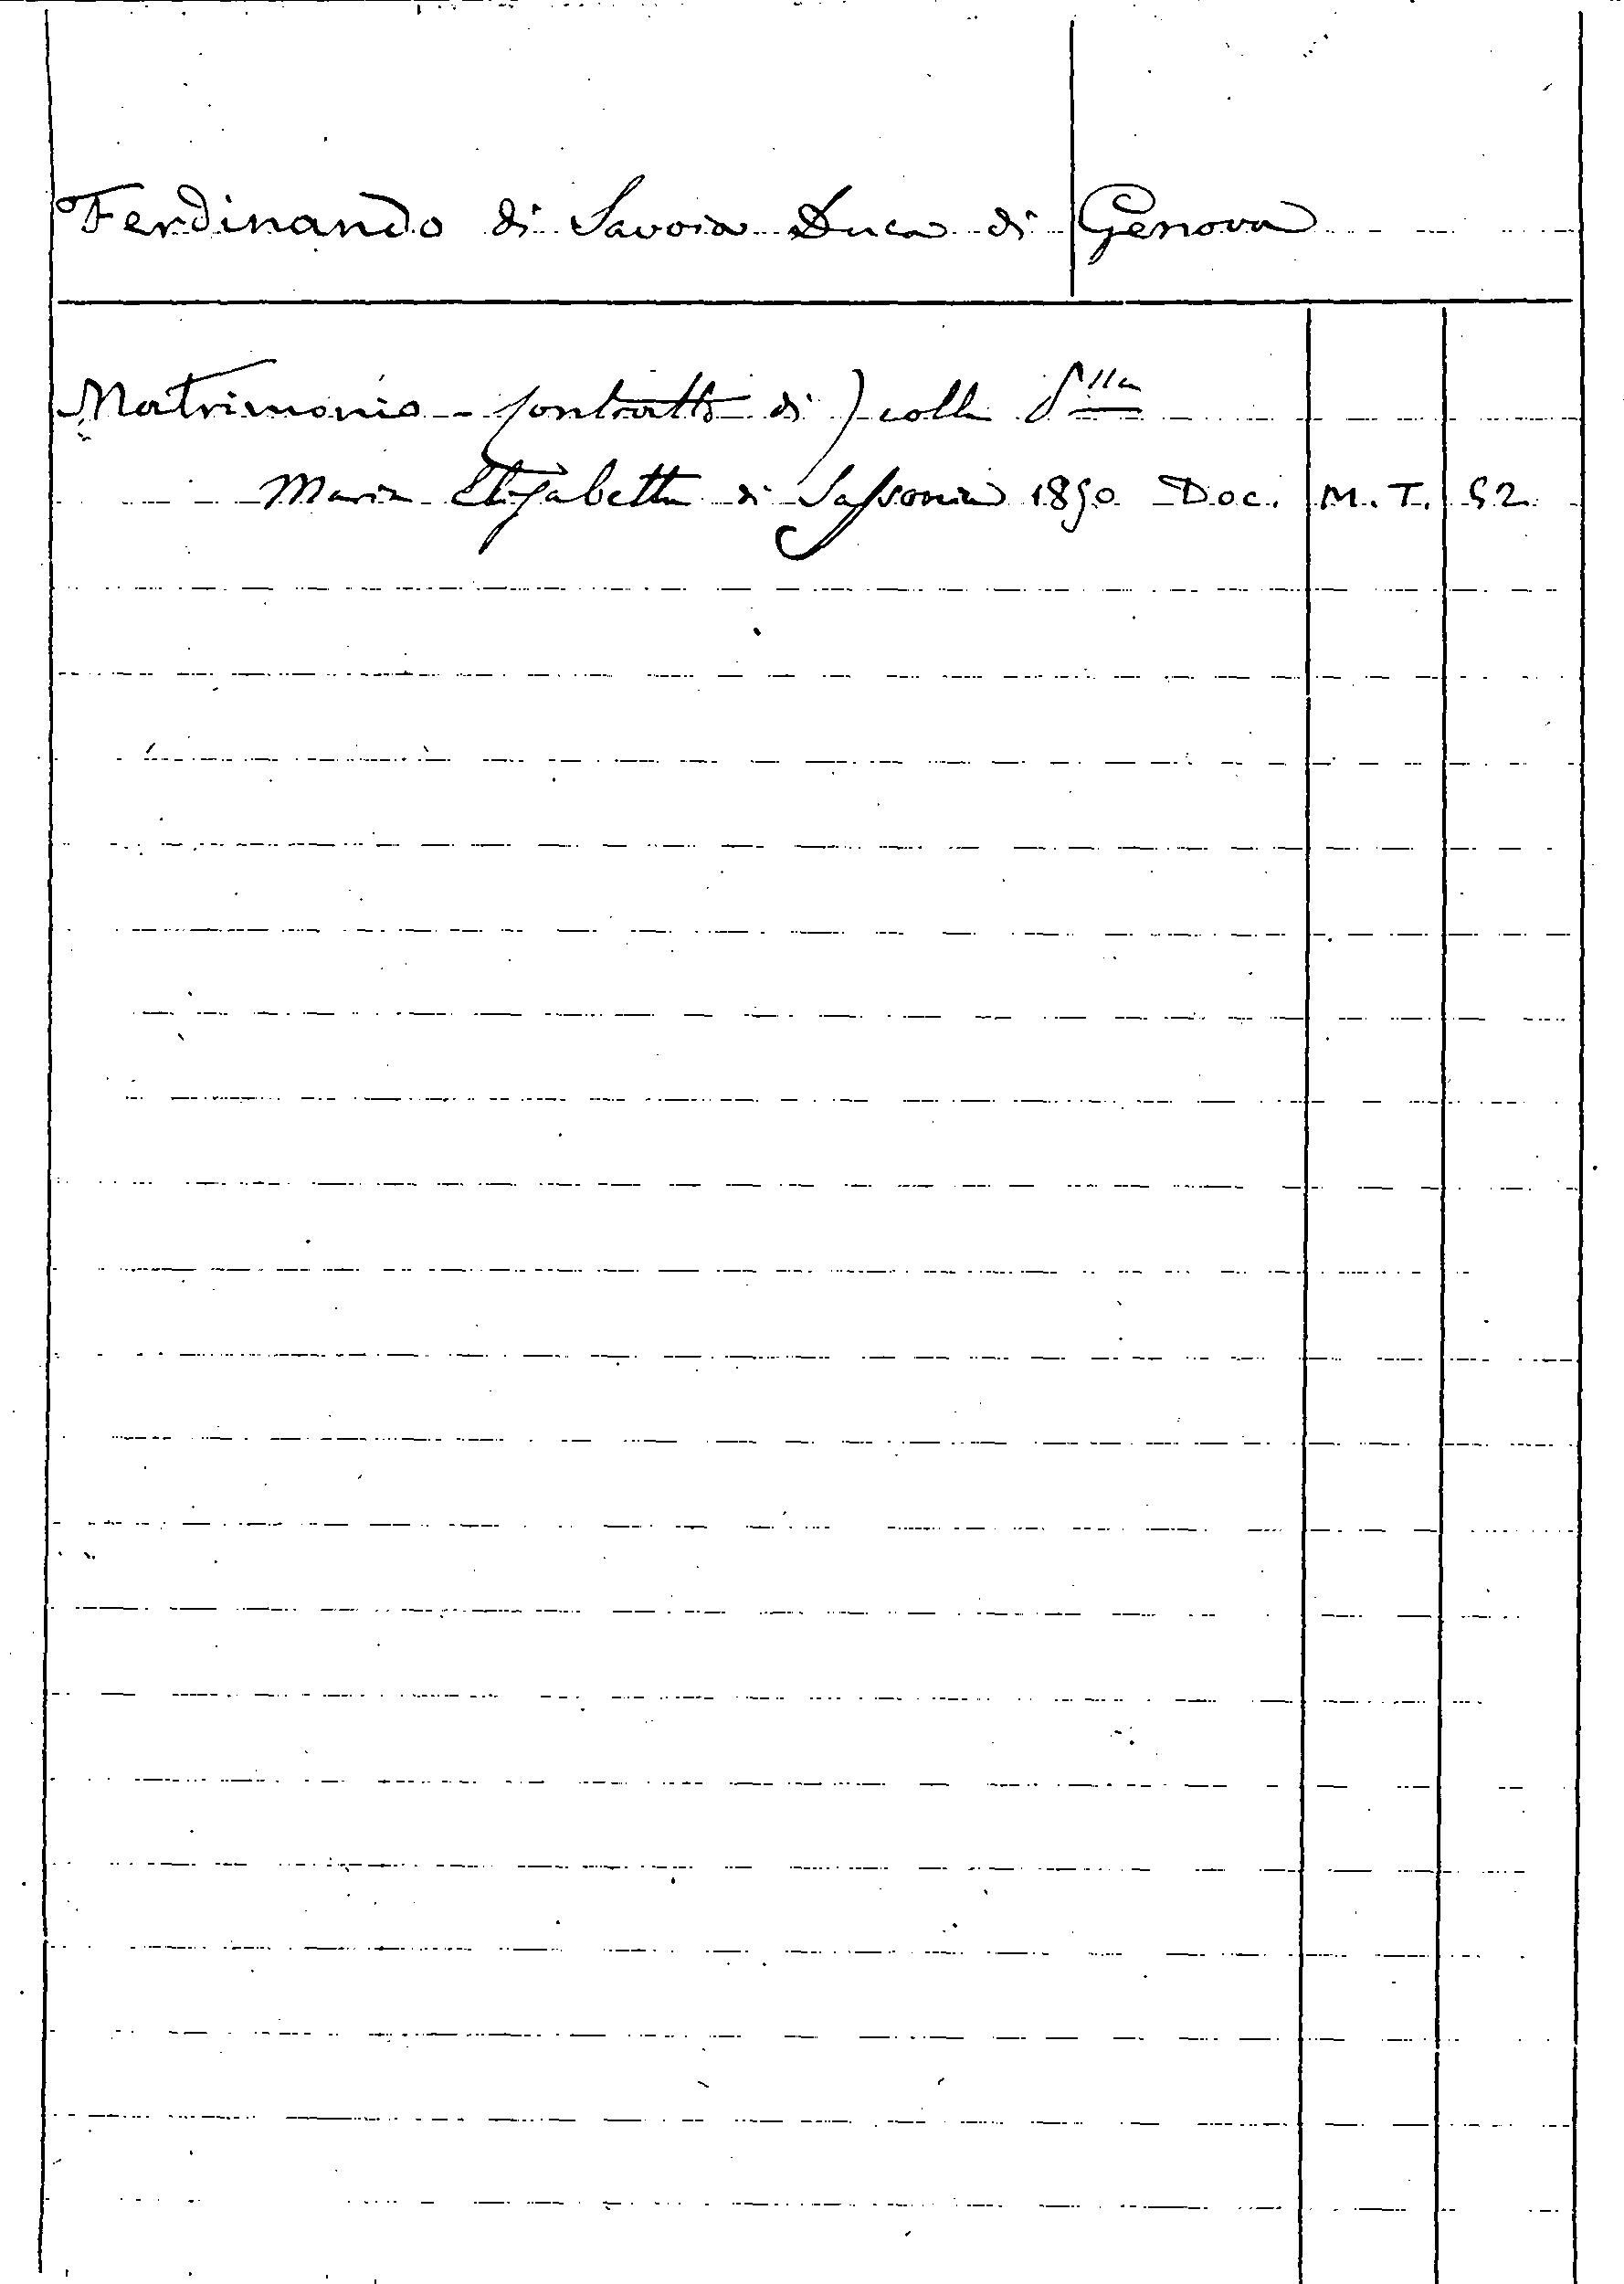 Ferdinando di Savoia Duca di Genova
Matrimonio - (contratto di) colla P.lla
Maria Elisabetta di Sassonia 1850 Doc. M. T. 52